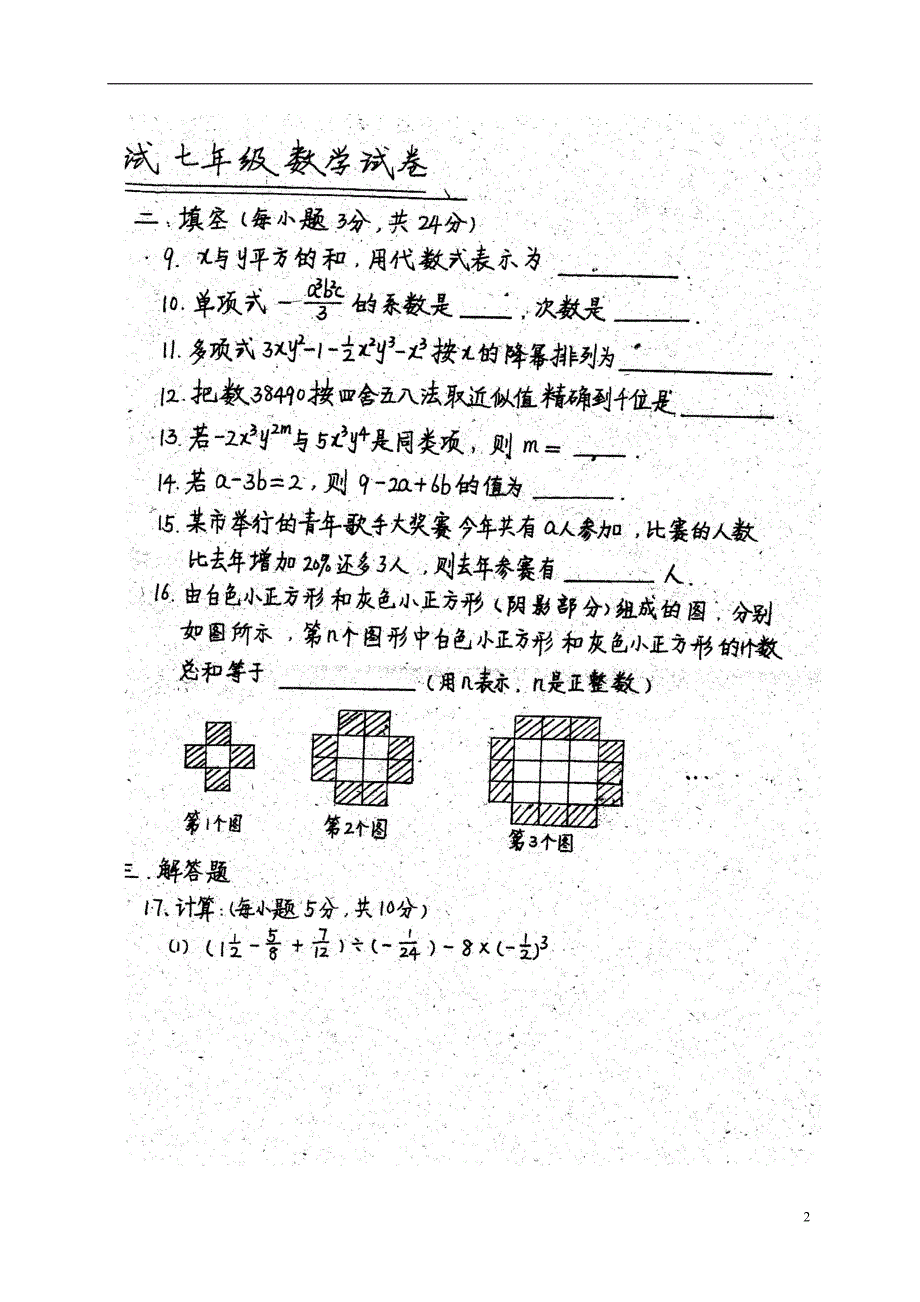 试七年级数学试卷
二.填空(每小题3分,共24分)
9. x与y平方的和,用代数式表示为 ______.
10. 单项式 -a³b²c/3 的系数是 ____,次数是 ______.
11. 多项式3xy²-1-½x²y³-x³按x的降幂排列为________
12. 把数38490按四舍五入法取近似值精确到千位是______
13. 若-2x³y²ᵐ与5x³y⁴是同类项,则m=____.
14. 若a-3b=2,则9-2a+6b的值为______.
15. 某市举行的青年歌手大奖赛今年共有a人参加,比赛的人数
比去年增加20%还多3人,则去年参赛有______人.
16. 由白色小正方形和灰色小正方形(阴影部分)组成的图,分别
如图所示,第n个图形中白色小正方形和灰色小正方形的个数
总和等于 ________ (用n表示,n是正整数)
...
第1个图 第2个图 第3个图
三.解答题
17、计算:(每小题5分,共10分)
(1) (1½-5/8+7/12)÷(-1/24)-8×(-½)³
2